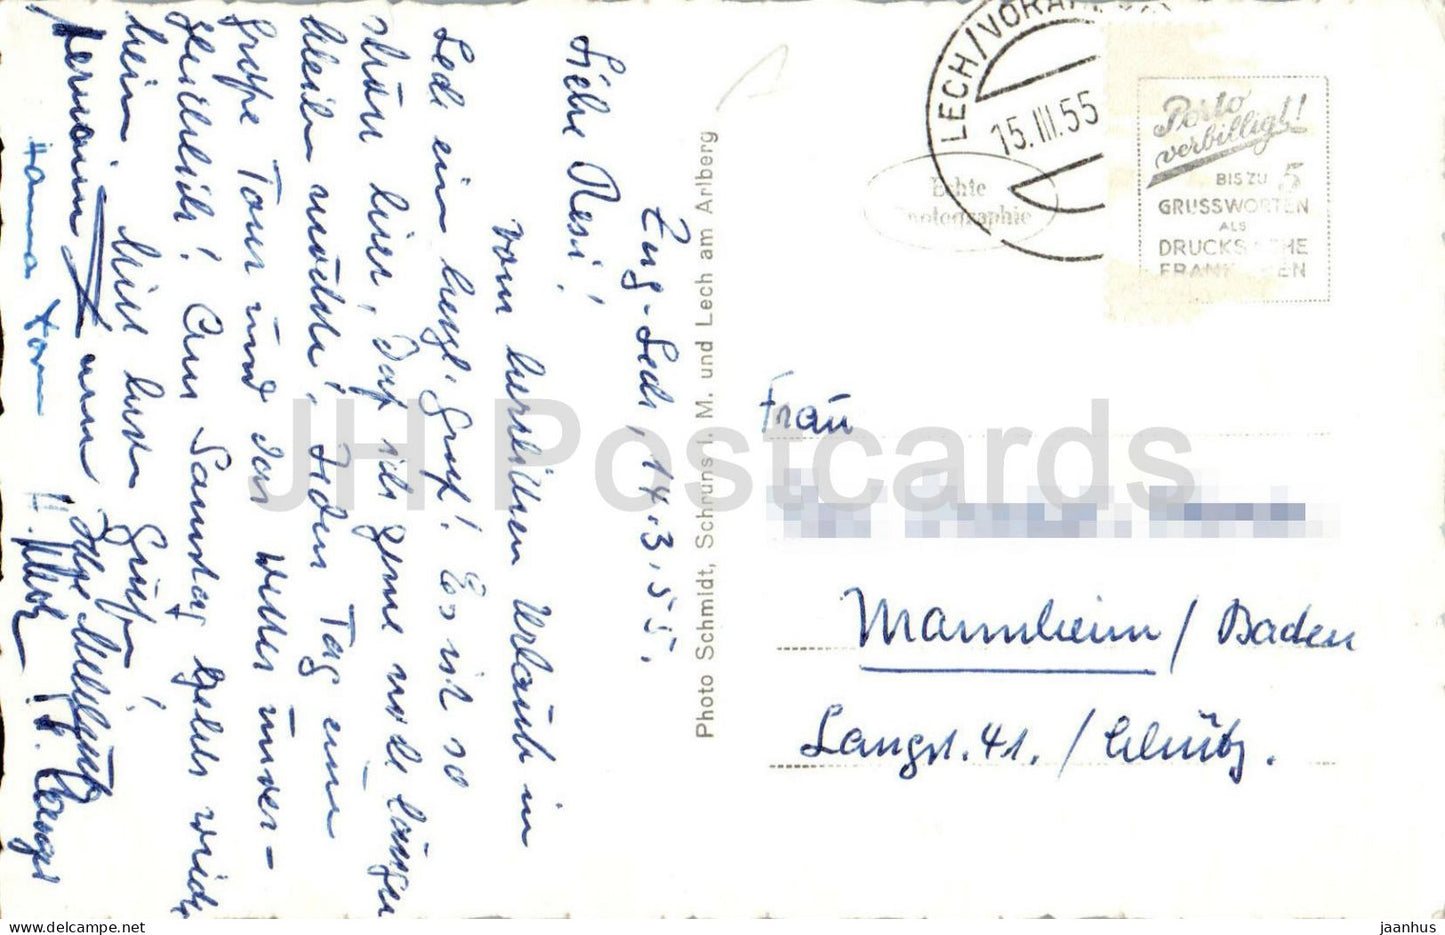 Zug-Lech, 14.3.55.
Liebe Resi!
Vom herrlichen Urlaub in
Lech ein herzl. Gruß! Es ist so
schön hier, daß ich gerne noch länger
bleiben möchte! Jeden Tag eine
große Tour und das Wetter unver-
gleichlich! Am Samstag geht's wieder
heim. Viele liebe Grüße!
Hermann
Hanna
H.
Photo Schmidt, Schruns i. M. und Lech am Arlberg
LECH/VORARLBERG
15.III.55
Echte
Photographie
Porto
verbilligt!
BIS ZU 5
GRUSSWORTEN
ALS
DRUCKSACHE
FRANKIEREN
Frau
Mannheim / Baden
Langst. 41. /
JH Postcards
www.delcampe.net
jaanhus